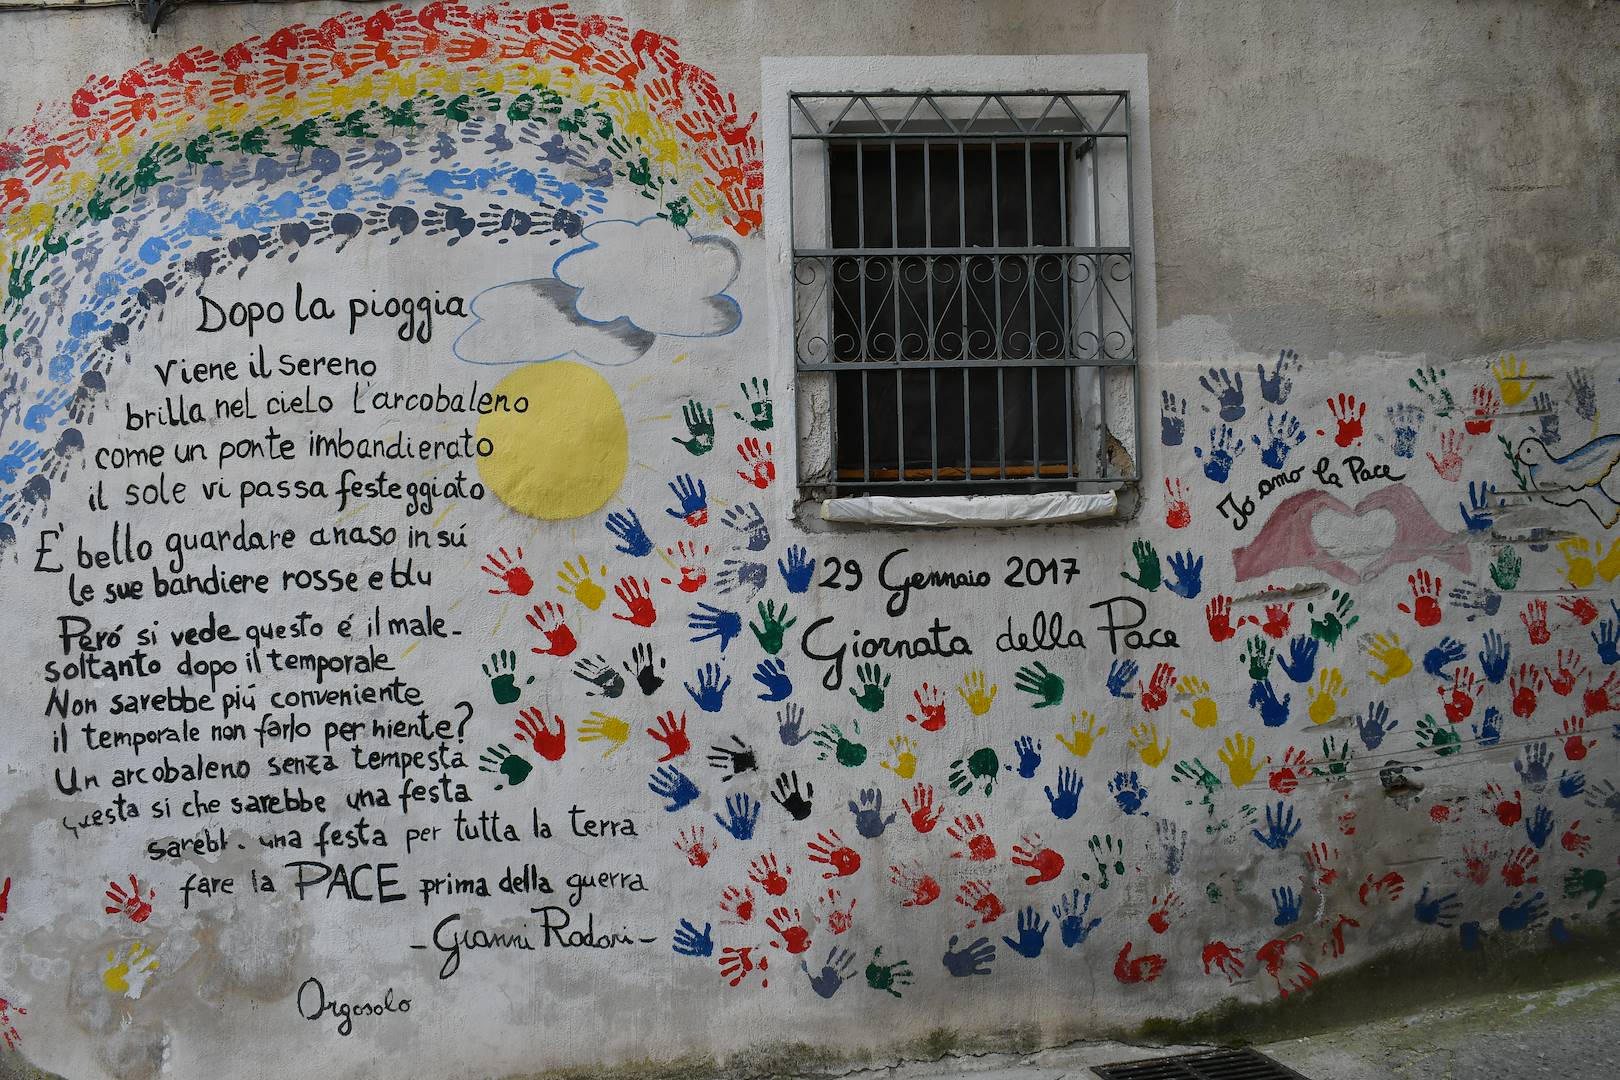 Dopo la pioggia
viene il sereno
brilla nel cielo l'arcobaleno
come un ponte imbandierato
il sole vi passa festeggiato
E' bello guardare a naso in sú
le sue bandiere rosse e blu
Peró si vede questo é il male-
soltanto dopo il temporale
Non sarebbe piú conveniente
il temporale non farlo per niente?
Un arcobaleno senza tempesta
questa si che sarebbe una festa
sareb. una festa per tutta la terra
fare la PACE prima della guerra
- Gianni Rodari -
Orgosolo
29 Gennaio 2017
Giornata della Pace
Io amo la Pace